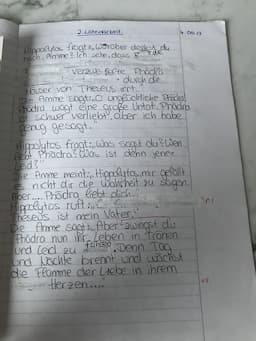 2. Lateinarbeit
Hippolytos fragt: „Worüber denkst du
nach, Amme? Ich sehe, dass
verzweifelte Phädra
durch die
Häuser von Theseus irrt."
Die Amme sagt: „O unglückliche Phädra!
Phädra wagt eine große Untat. Phädra
ist schwer verliebt, aber ich habe
genug gesagt."
Hippolytos fragt: „Was sagst du? Wen
liebt Phädra? Was ist denn jene
Die Amme meint: „Hippolytos, mir gefällt
es nicht dir die Wahrheit zu sagen.
Aber ... Phädra liebt dich."
Hippolytos ruft:
Theseus ist mein Vater."
Die Amme sagt: „Aber zwingst du
Phädra nun ihr Leben in Tränen
und Leid zu führen. Denn Tag
und Nacht brennt und wächst
die Flamme der Liebe in ihrem
Herzen....